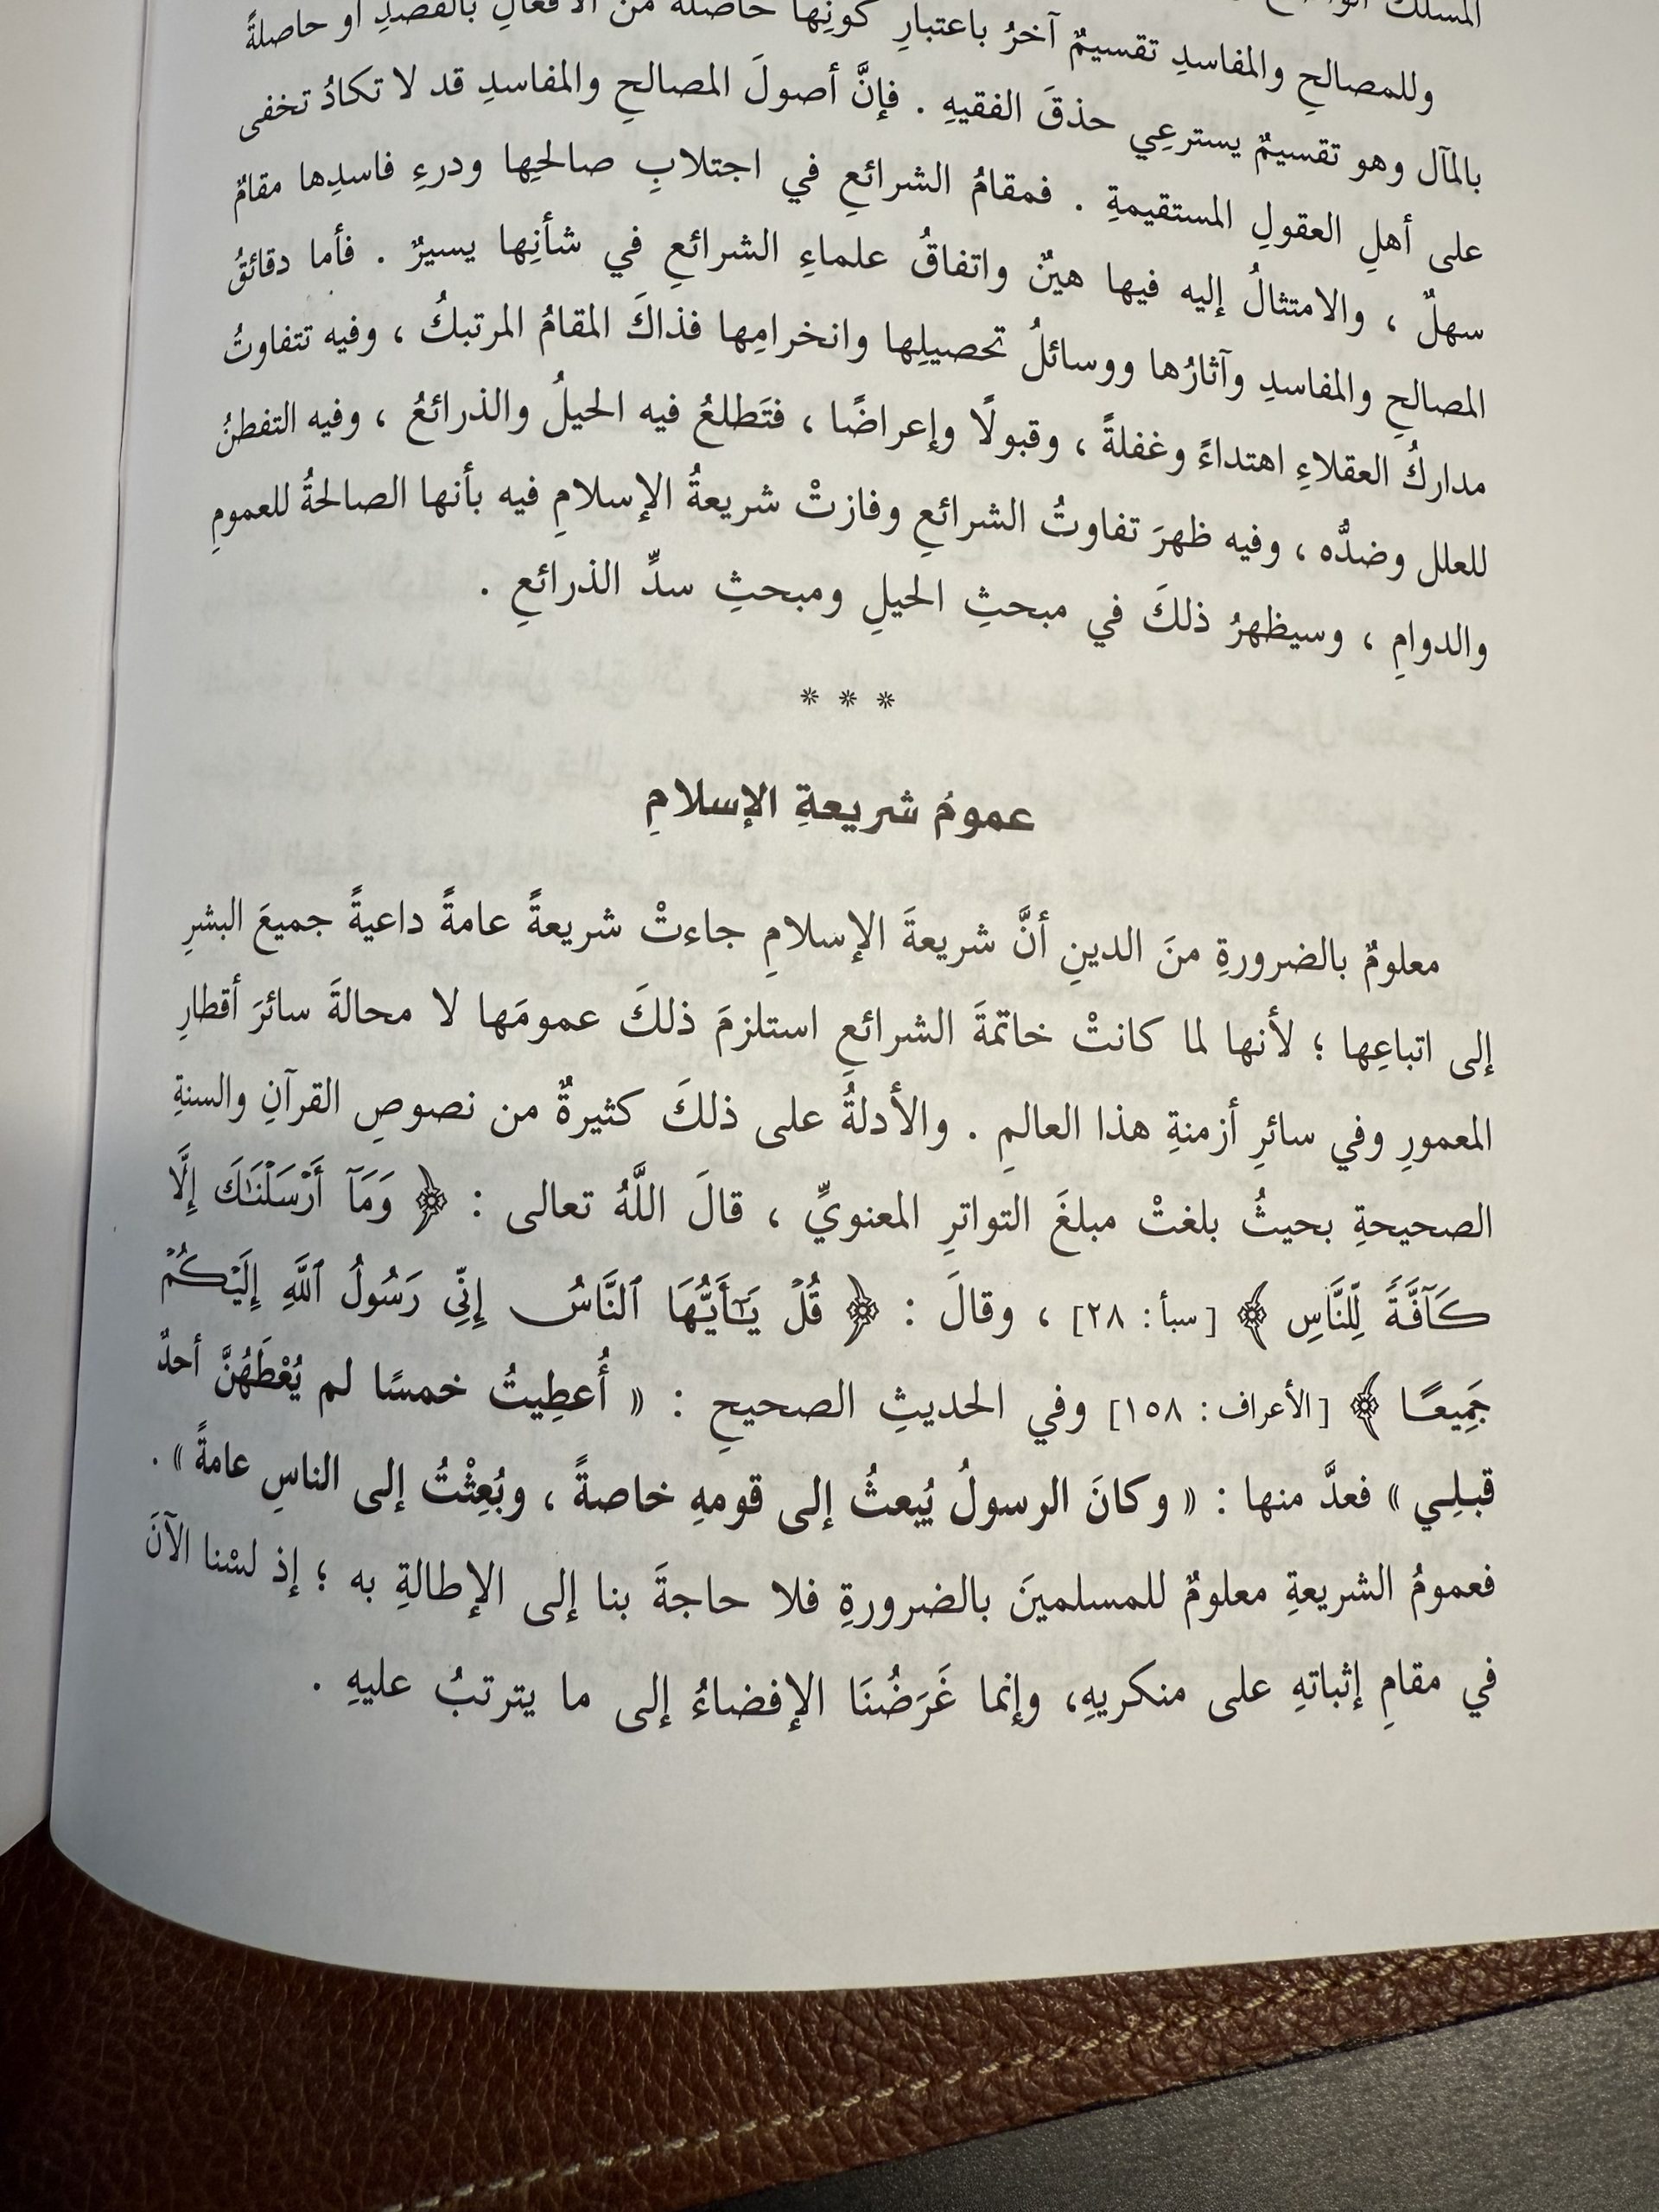 المسلك
وللمصالحِ والمفاسدِ تقسيمٌ آخرُ باعتبارِ كونِها حاصلةً من الأفعالِ بالقصدِ أو حاصلةً
بالمآل وهو تقسيمٌ يسترعِي حذقَ الفقيهِ . فإنَّ أصولَ المصالحِ والمفاسدِ قد لا تكادُ تخفى
على أهلِ العقولِ المستقيمةِ . فمقامُ الشرائعِ في اجتلابِ صالحِها ودرءِ فاسدِها مقامٌ
سهلٌ ، والامتثالُ إليه فيها هينٌ واتفاقُ علماءِ الشرائعِ في شأنِها يسيرٌ . فأما دقائقُ
المصالحِ والمفاسدِ وآثارُها ووسائلُ تحصيلِها وانخرامِها فذاكَ المقامُ المرتبكُ ، وفيه تتفاوتُ
مداركُ العقلاءِ اهتداءً وغفلةً ، وقبولًا وإعراضًا ، فتَطلعُ فيه الحيلُ والذرائعُ ، وفيه التفطنُ
للعلل وضدُّه ، وفيه ظهرَ تفاوتُ الشرائعِ وفازتْ شريعةُ الإسلامِ فيه بأنها الصالحةُ للعمومِ
والدوامِ ، وسيظهرُ ذلكَ في مبحثِ الحيلِ ومبحثِ سدِّ الذرائعِ .
* * *
عمومُ شريعةِ الإسلامِ
معلومٌ بالضرورةِ منَ الدينِ أنَّ شريعةَ الإسلامِ جاءتْ شريعةً عامةً داعيةً جميعَ البشرِ
إلى اتباعِها ؛ لأنها لما كانتْ خاتمةَ الشرائعِ استلزمَ ذلكَ عمومَها لا محالةَ سائرَ أقطارِ
المعمورِ وفي سائرِ أزمنةِ هذا العالمِ . والأدلةُ على ذلكَ كثيرةٌ من نصوصِ القرآنِ والسنةِ
الصحيحةِ بحيثُ بلغتْ مبلغَ التواترِ المعنويِّ ، قالَ اللَّهُ تعالى : ﴿ وَمَآ أَرْسَلْنَٰكَ إِلَّا
كَآفَّةً لِّلنَّاسِ ﴾ [سبأ: ٢٨] ، وقالَ : ﴿ قُلْ يَٰٓأَيُّهَا ٱلنَّاسُ إِنِّى رَسُولُ ٱللَّهِ إِلَيْكُمْ
جَمِيعًا ﴾ [الأعراف: ١٥٨] وفي الحديثِ الصحيحِ : « أُعطِيتُ خمسًا لم يُعْطَهُنَّ أحدٌ
قبلِي » فعدَّ منها : « وكانَ الرسولُ يُبعثُ إلى قومهِ خاصةً ، وبُعِثْتُ إلى الناسِ عامةً » .
فعمومُ الشريعةِ معلومٌ للمسلمينَ بالضرورةِ فلا حاجةَ بنا إلى الإطالةِ به ؛ إذ لسْنا الآنَ
في مقامِ إثباتهِ على منكريهِ، وإنما غَرَضُنَا الإفضاءُ إلى ما يترتبُ عليهِ .